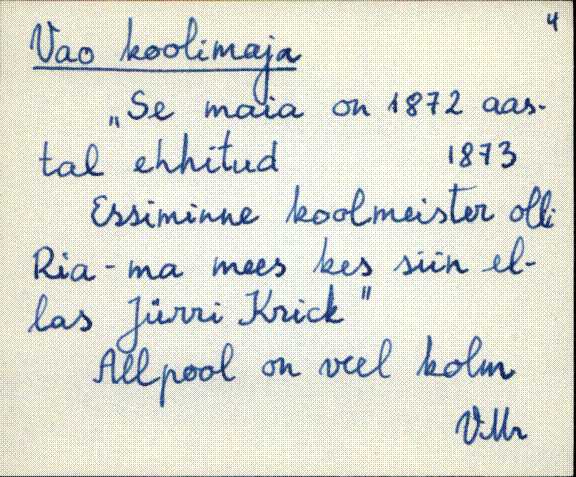 4
Vao koolimaja
„Se maia on 1872 aas-
tal ehhitud 1873
Essiminne koolmeister olli
Ria-ma mees kes siin el-
las Jürri Krick"
Allpool on veel kolm